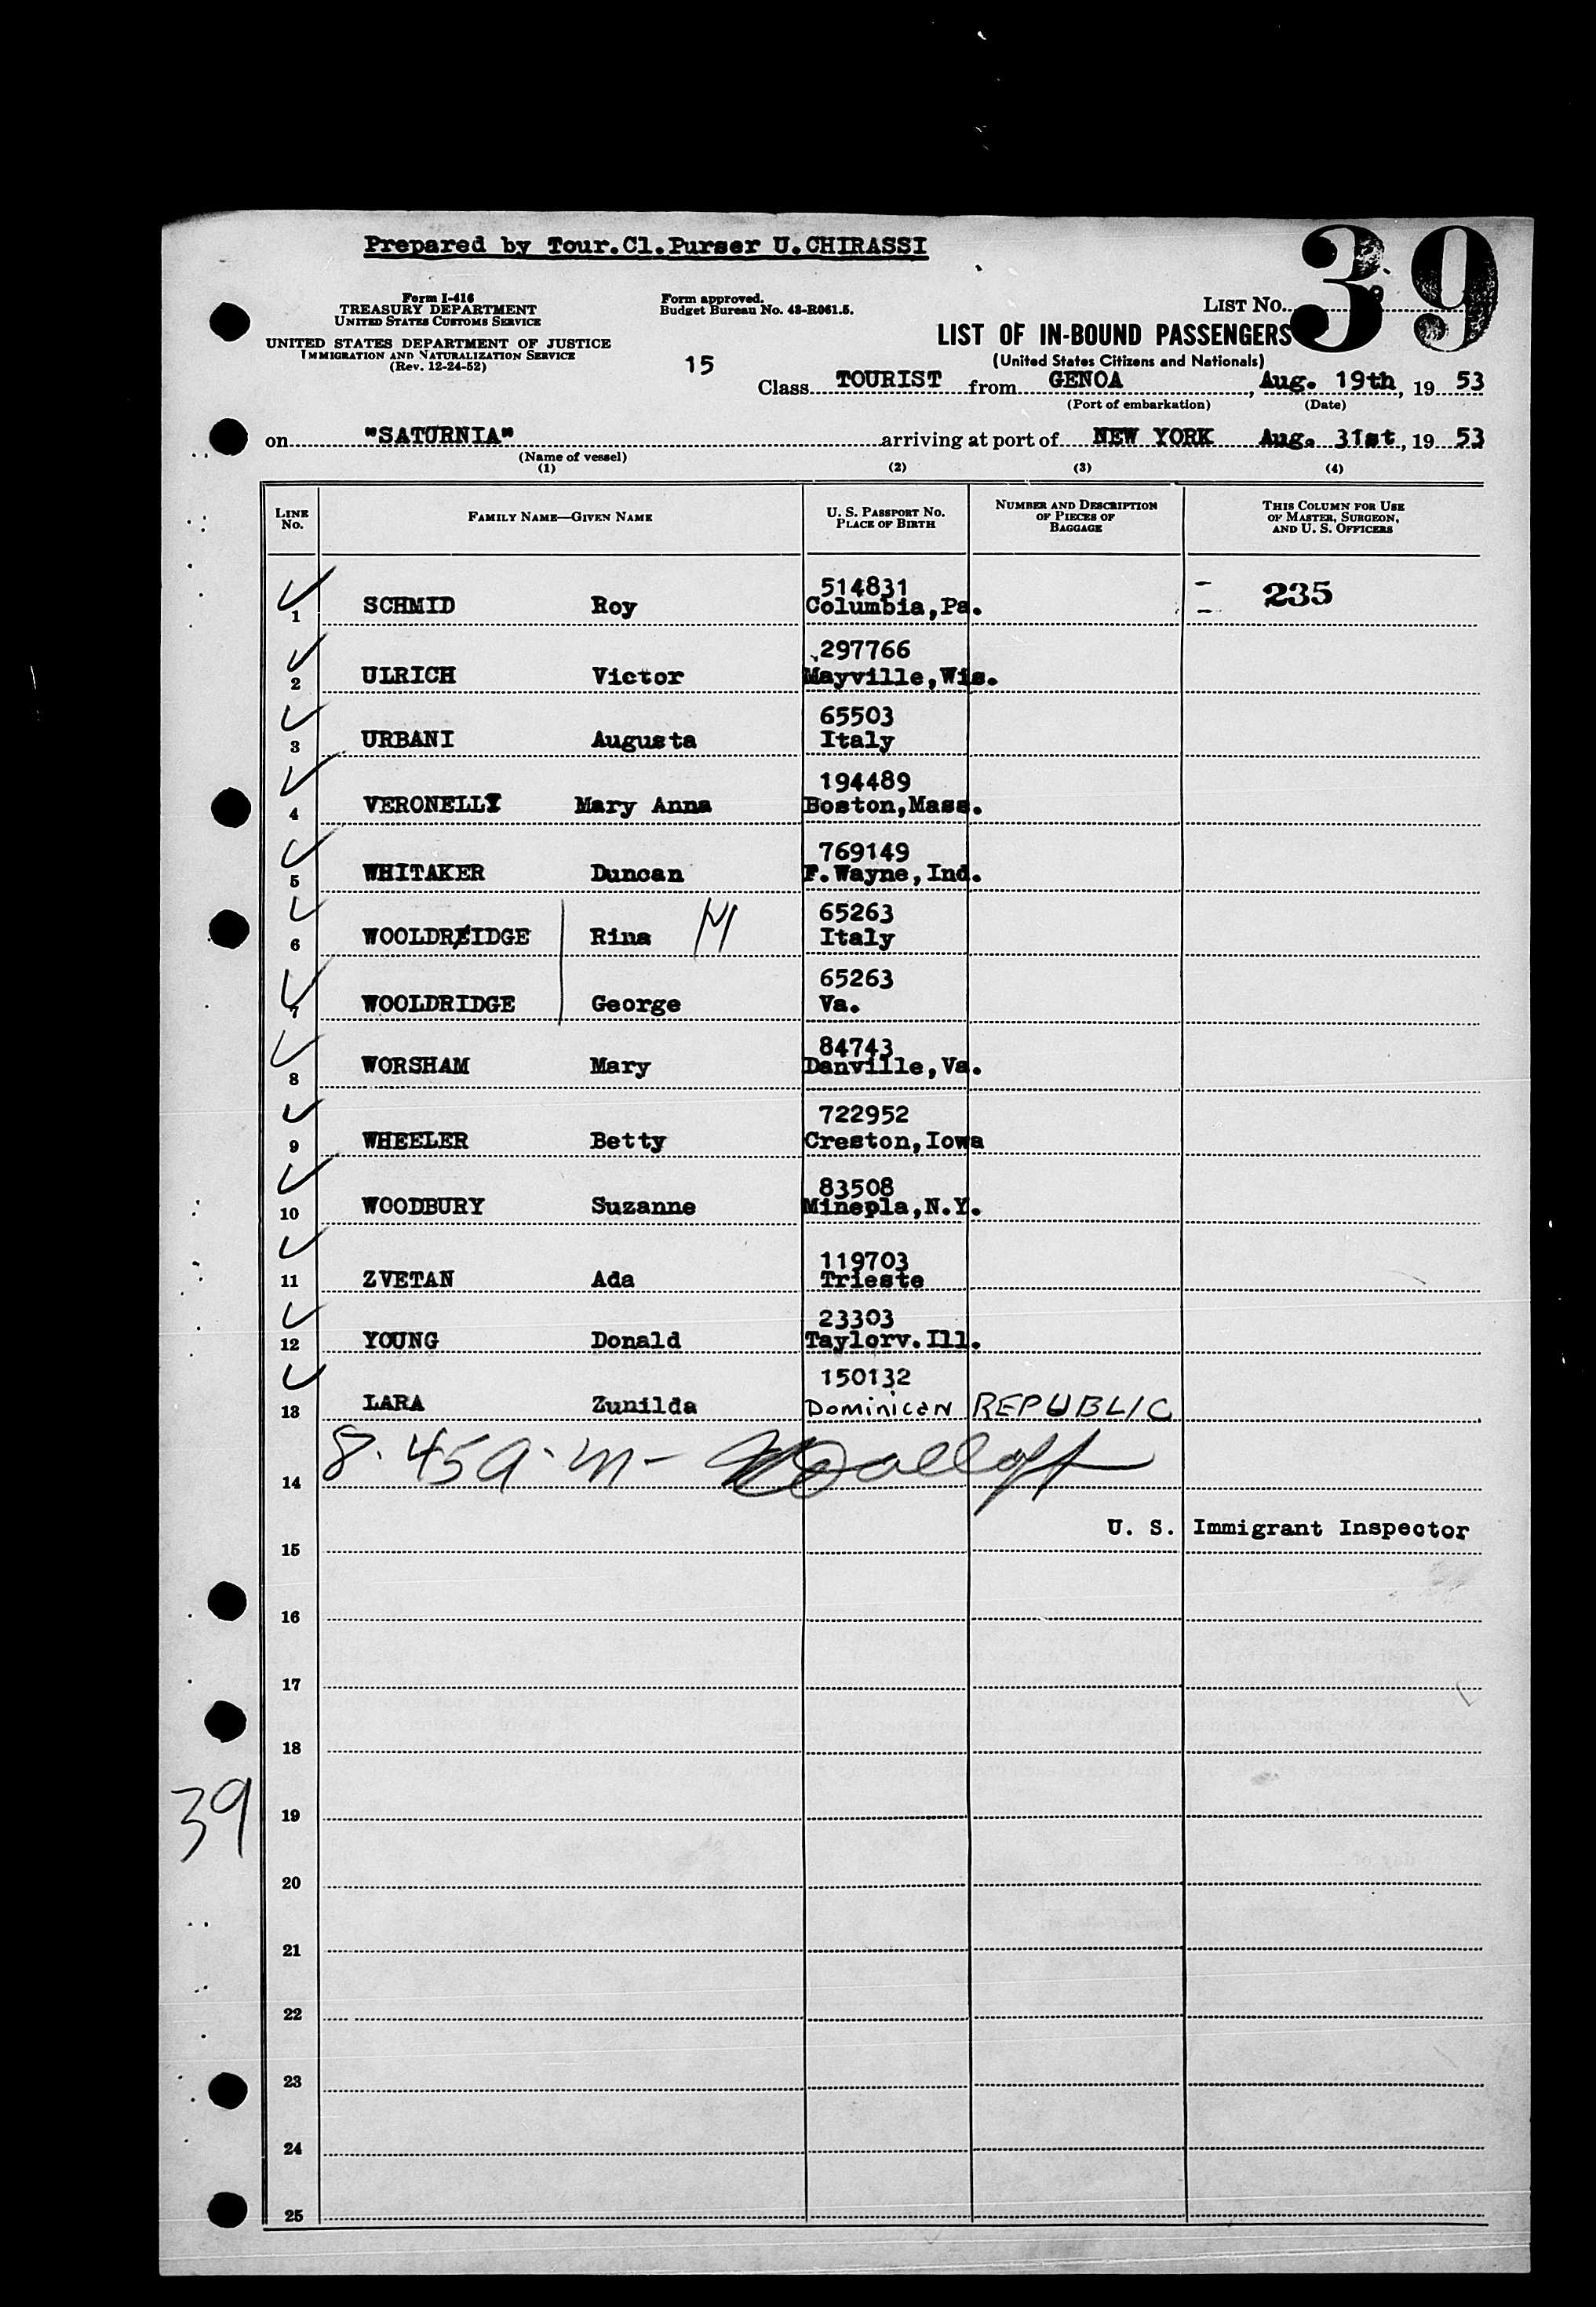 Prepared by Tour.Cl.Purser U.CHIRASSI
39
Form I-416
TREASURY DEPARTMENT
UNITED STATES CUSTOMS SERVICE
UNITED STATES DEPARTMENT OF JUSTICE
IMMIGRATION AND NATURALIZATION SERVICE
(Rev. 12-24-52)
Form approved.
Budget Bureau No. 43-R061.5.
LIST No.
LIST OF IN-BOUND PASSENGERS
(United States Citizens and Nationals)
15
Class TOURIST from GENOA, Aug. 19th, 19 53
(Port of embarkation) (Date)
on "SATURNIA" arriving at port of NEW YORK Aug. 31st, 19 53
(Name of vessel)
(1) (2) (3) (4)
LINE No. FAMILY NAME—GIVEN NAME U. S. PASSPORT No. PLACE OF BIRTH NUMBER AND DESCRIPTION OF PIECES OF BAGGAGE THIS COLUMN FOR USE OF MASTER, SURGEON, AND U. S. OFFICERS
514831
1 SCHMID Roy Columbia,Pa. 235
297766
2 ULRICH Victor Mayville,Wis.
65503
3 URBANI Augusta Italy
194489
4 VERONELLI Mary Anna Boston,Mass.
769149
5 WHITAKER Duncan F.Wayne,Ind.
65263
6 WOOLDREIDGE Rina M Italy
65263
7 WOOLDRIDGE George Va.
84743
8 WORSHAM Mary Danville,Va.
722952
9 WHEELER Betty Creston,Iowa
83508
10 WOODBURY Suzanne Minepla,N.Y.
119703
11 ZVETAN Ada Trieste
23303
12 YOUNG Donald Taylorv.Ill.
150132
13 LARA Zunilda Dominican REPUBLIC
14 8.45 a.m-
U. S. Immigrant Inspector
15
16
17
18
39
19
20
21
22
23
24
25